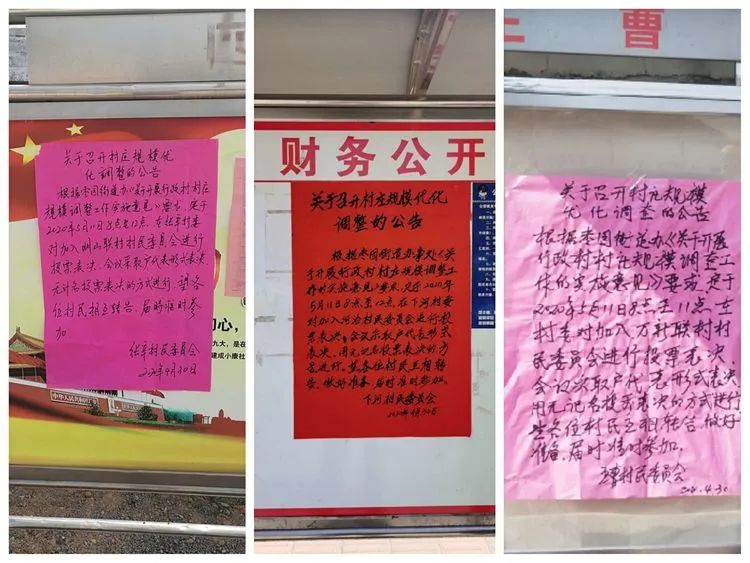 关于召开村庄规模优
化调整的公告
根据枣园街道办《关于开展行政村村庄
规模调整工作实施意见》要求,定于
2020年5月11日8点至12点,在张辛村委
对加入明山联村村民委员会进行
投票表决,会议采取户代表形式表决,
无记名投票表决的方式进行,望各
位村民相互转告,届时准时参
加
张辛村民委员会
2020年4月30日
初心,
九大,是在
建成小康社
中华人民共和国万
财务公开
关于召开村庄规模优化
调整的公告
根据枣园街道办事处《关
于开展行政村村庄规模调整工
作的实施意见》要求,定于2020年
5月11日8点至12点,在下河村委
对加入河泊村民委员会进行投
票表决,会议采取户代表形式
表决,用无记名投票表决的方
式进行,望各位村民互相转
告,做好准备,届时准时参加。
下河村民委员会
2020年4月30日
曹
关于召开村庄规模
优化调查的公告
根据枣园街道办《关于开展
行政村村庄规模调整工
作的实施意见》要求定于
2020年5月11日8点至11点在
村委对加入万新联村村
民委员会进行投票表决,
会议采取户代表形式表决,
用无记名投票表决的方式进行
望各位村民互相转告,做好
准备,届时准时参加,
曹村民委员会
2020.4.30